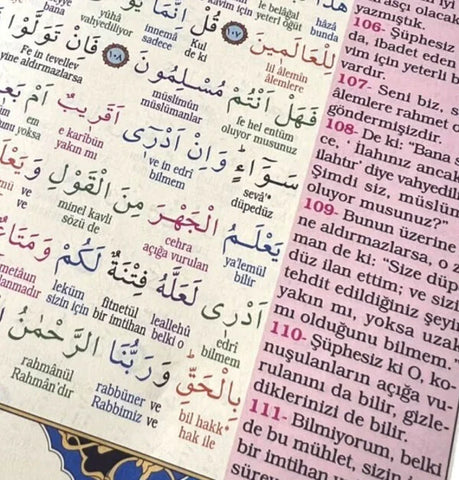 هٰذَا
hâzâ
bunda
le belâğal
için yeterl öğüt
kavim için
لِلْعَالَمِينَ ﴿١٠٧﴾ قُلْ إِنَّمَا
lil âlemin
âlemlere
Kul
de ki
innemâ
sadece
yûhâ
vahyediliyor
فَهَلْ أَنْتُمْ مُسْلِمُونَ ﴿١٠٨﴾ فَإِنْ تَوَلَّوْا
fe hel entüm
oluyor musunuz
müslimûn
müslümanlar
Fe in tevellev
yine aldırmazlarsa
سَوَاءٍ وَإِنْ أَدْرِى أَقَرِيبٌ أَمْ
sevâ'
düpedüz
ve in edri
bilmem
e karibün
yakın mı
em
yoksa
يَعْلَمُ الْجَهْرَ مِنَ الْقَوْلِ وَيَعْلَمُ
ya'lemül
bilir
cehra
açığa vurulan
minel kavli
sözü de
ve
ve
أَدْرِى لَعَلَّهُ فِتْنَةٌ لَكُمْ وَمَتَاعٌ
edri
bilmem
leallehû
belki o
fitnetül
bir imtihan
leküm
sizin için
ve metâun
بِالْحَقِّ وَرَبُّنَا الرَّحْمٰنُ
bil hakk
hak ile
rabbüner ve
Rabbimiz ve
rahmânül
Rahmân'dır
yazmıştık.
106- Şüphesiz
da, ibadet eden
vim için yeterli b
vardır.
107. Seni biz, s
âlemlere rahmet o
göndermişizdir.
108- De ki: "Bana s
ce, ' İlahınız ancak
ilahtır' diye vahyedili
Şimdi siz, müslüm
oluyor musunuz?"
109- Bunun üzerine
ne aldırmazlarsa, o z
man de ki: "Size düp
düz ilan ettim; ve sizi
tehdit edildiğiniz şeyi
yakın mı, yoksa uzak
mı olduğunu bilmem."
110- Şüphesiz ki O, ko-
nuşulanların açığa vu-
rulanını da bilir, gizle-
diklerinizi de bilir.
111- Bilmiyorum, belki
de bu mühlet, sizin
bir imtihan v
sürey